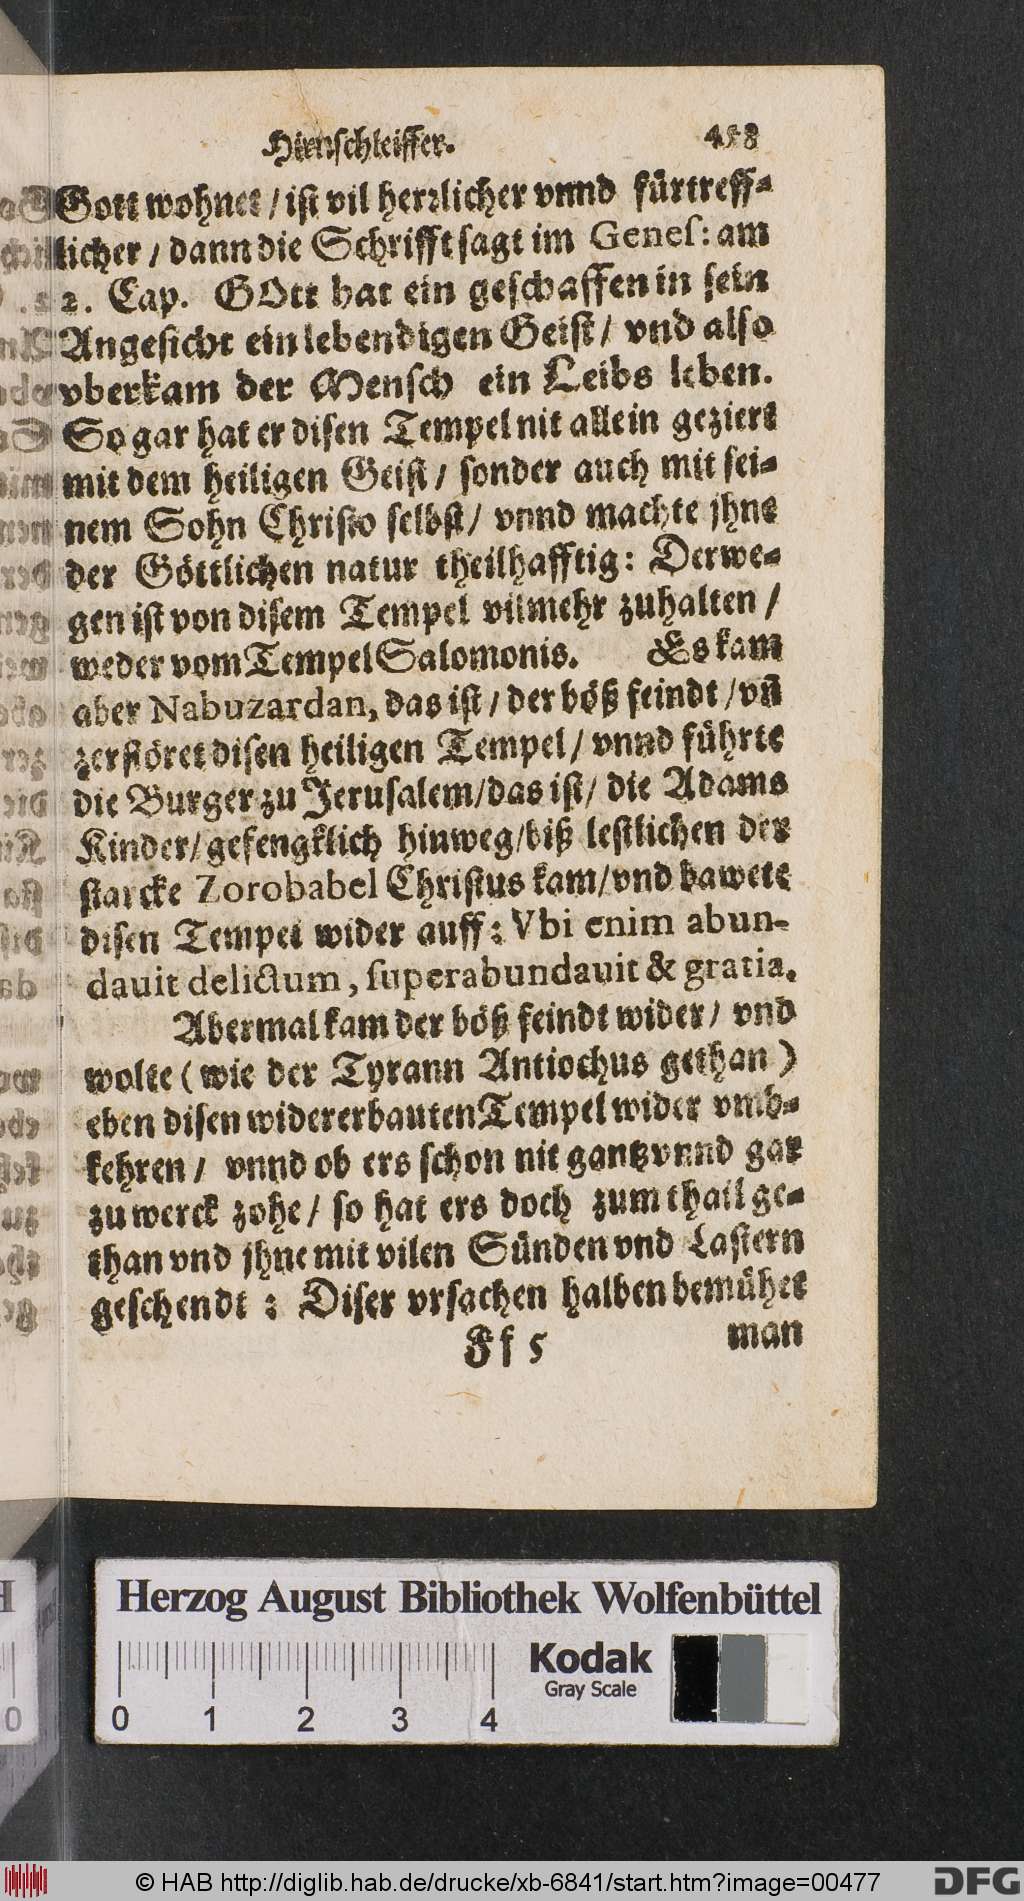 Hirnschleiffer. 458
Gott wohnet / ist vil herꝛlicher vnnd fürtreff-
licher / dann die Schrifft sagt im Genes: am
2. Cap. GOtt hat ein geschaffen in sein
Angesicht ein lebendigen Geist / vnd also
vberkam der Mensch ein Leibs leben.
So gar hat er disen Tempel nit allein geziert
mit dem heiligen Geist / sonder auch mit sei-
nem Sohn Christo selbst / vnnd machte jhne
der Göttlichen natur theilhafftig: Derwe-
gen ist von disem Tempel vilmehr zuhalten /
weder vom Tempel Salomonis. Es kam
aber Nabuzardan, das ist / der böß feindt / vñ
zerstöret disen heiligen Tempel / vnnd führte
die Burger zu Jerusalem / das ist / die Adams
Kinder / gefengklich hinweg / biß lestlichen der
starcke Zorobabel Christus kam / vnd bawete
disen Tempel wider auff: Vbi enim abun-
dauit delictum, superabundauit & gratia.
Abermal kam der böß feindt wider / vnd
wolte (wie der Tyrann Antiochus gethan)
eben disen widererbauten Tempel wider vmb-
kehren / vnnd ob ers schon nit gantz vnnd gar
zu werck zohe / so hat ers doch zum thail ge-
than vnd jhne mit vilen Sünden vnd Lastern
geschendt: Diser vrsachen halben bemühet
Ff 5 man
Herzog August Bibliothek Wolfenbüttel
Kodak
Gray Scale
0 1 2 3 4
© HAB http://diglib.hab.de/drucke/xb-6841/start.htm?image=00477
DFG